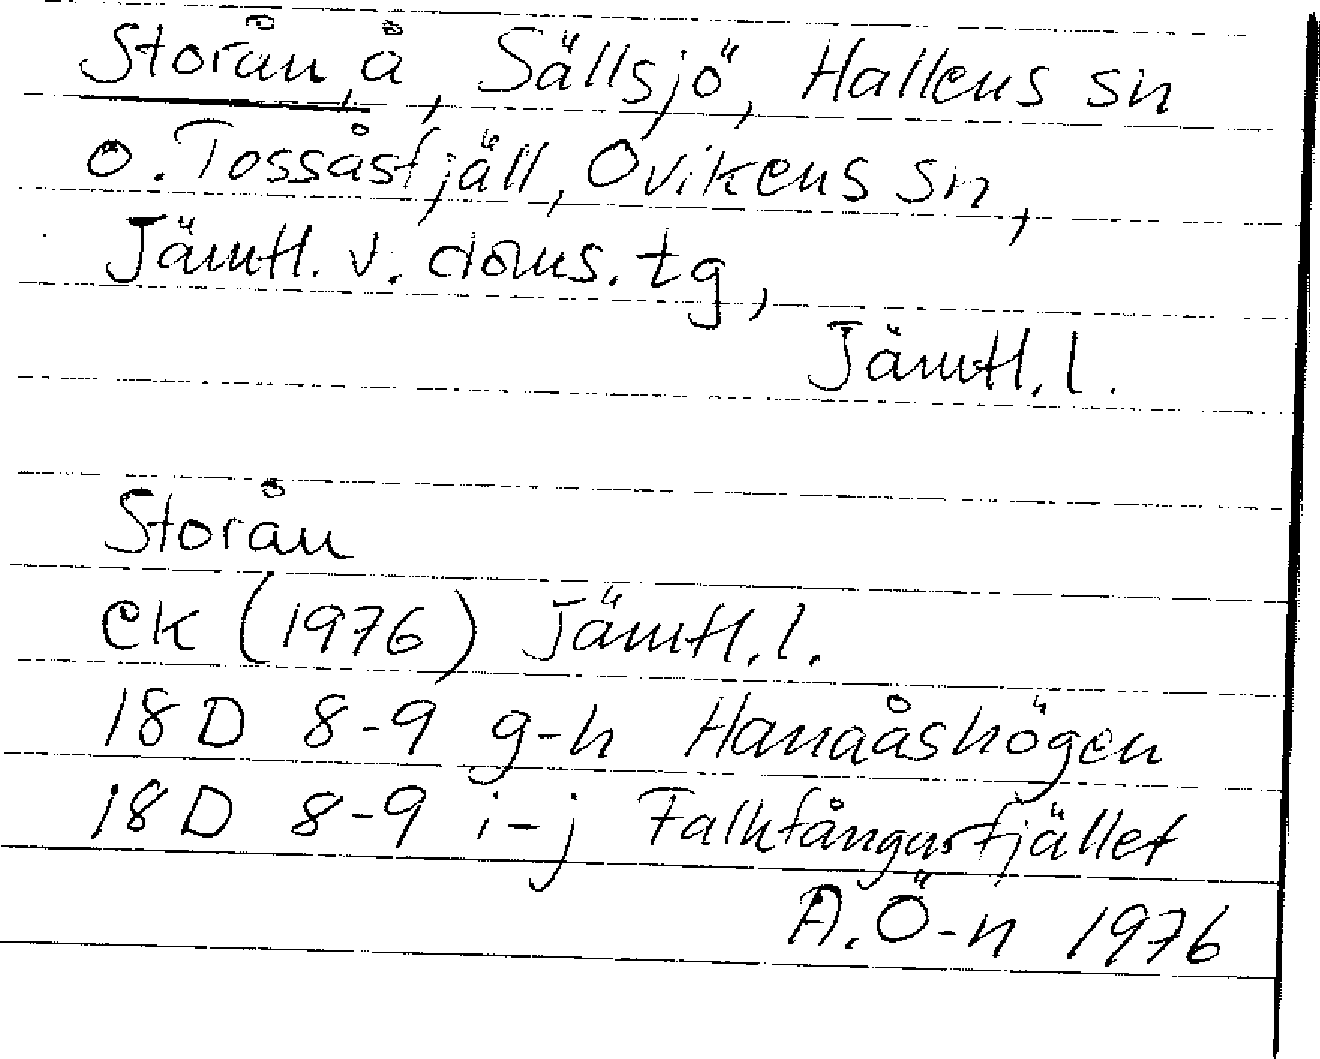 Storån, å, Sällsjö, Hallens sn
o. Tossåsfjäll, Ovikens sn,
Jämtl. v. doms. tg,
Jämtl. l.
Storån
ek (1976) Jämtl. l.
18D 8-9 g-h Hanaåshögen
18D 8-9 i-j Falkfångarfjället
A. Ö-n 1976